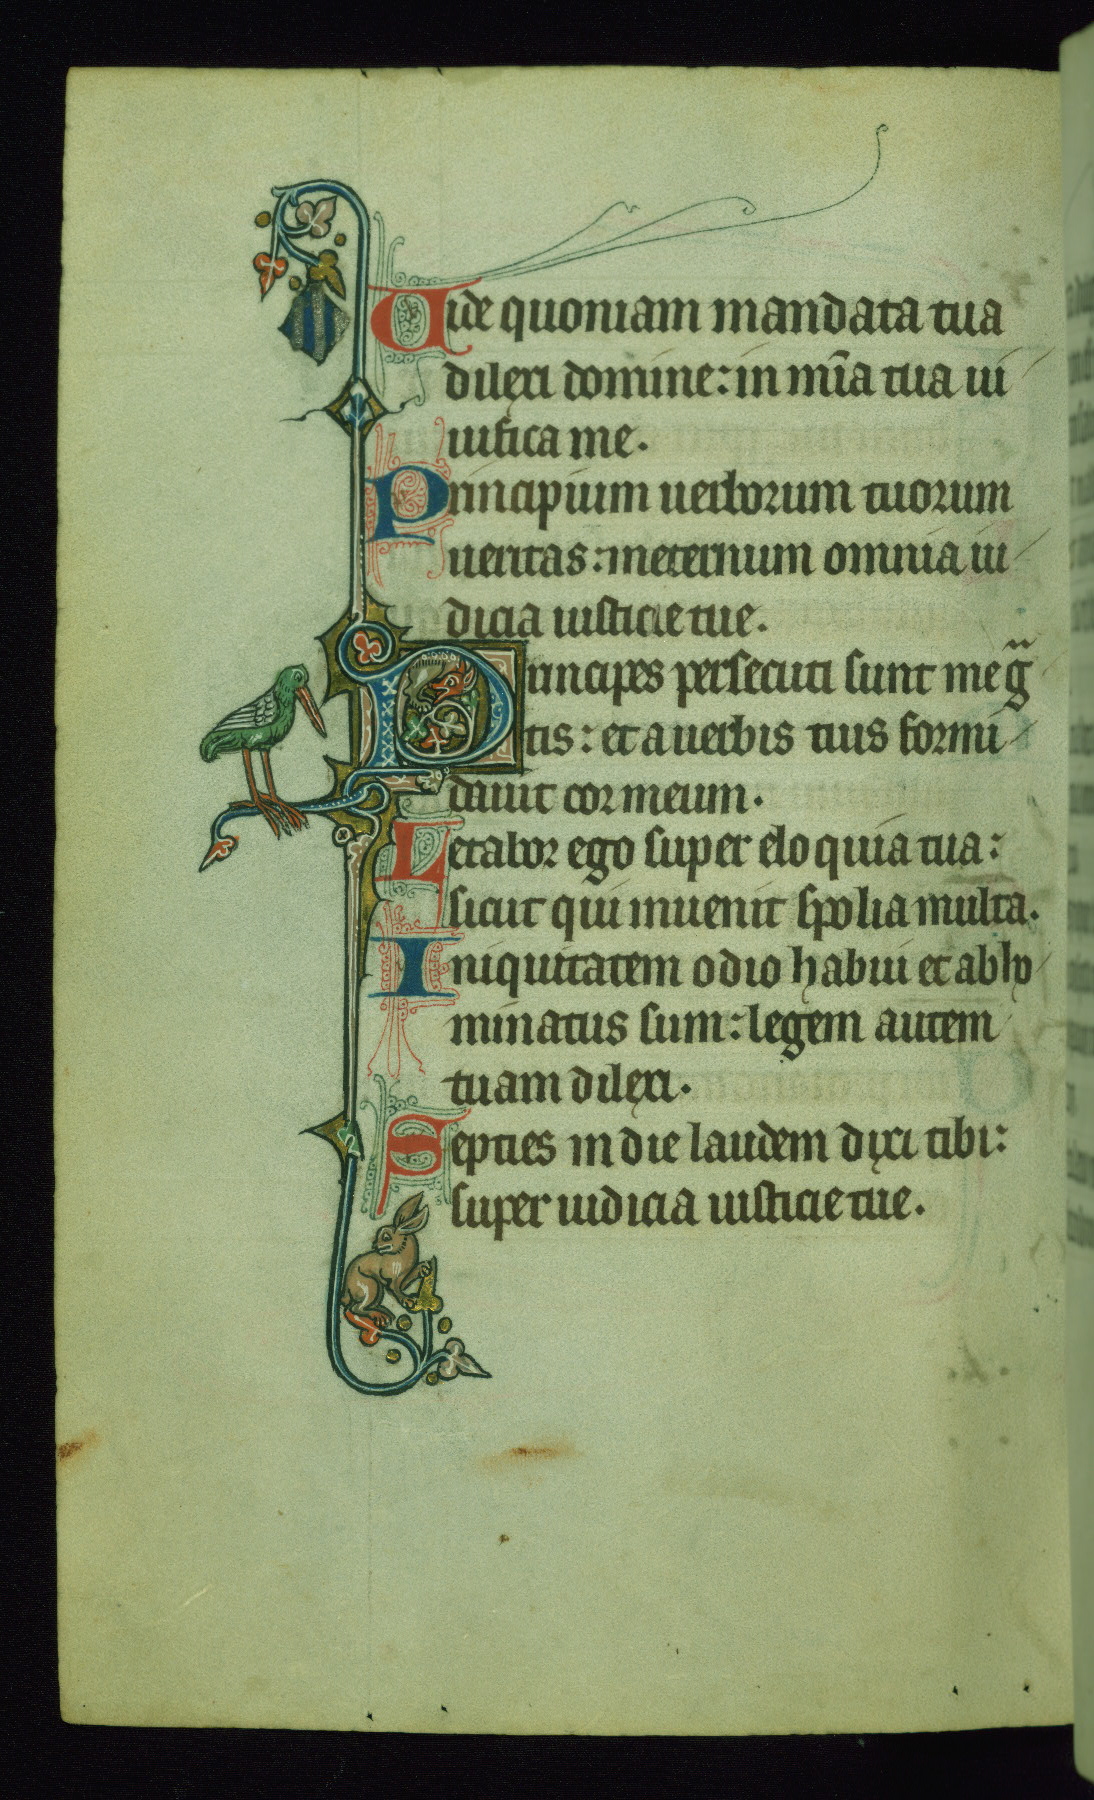 Uide quoniam mandata tua
dilexi domine: in mīa tua ui
uifica me.
Principium uerborum tuorum
ueritas: ineternum omnia iu
dicia iusticie tue.
Principes persecuti sunt me gͣ
tis: et a uerbis tuis formi
dauit cor meum.
Letabor ego super eloquia tua:
sicut qui inuenit spolia multa.
Iniquitatem odio habui et abho
minatus sum: legem autem
tuam dilexi.
Septies in die laudem dixi tibi:
super iudicia iusticie tue.